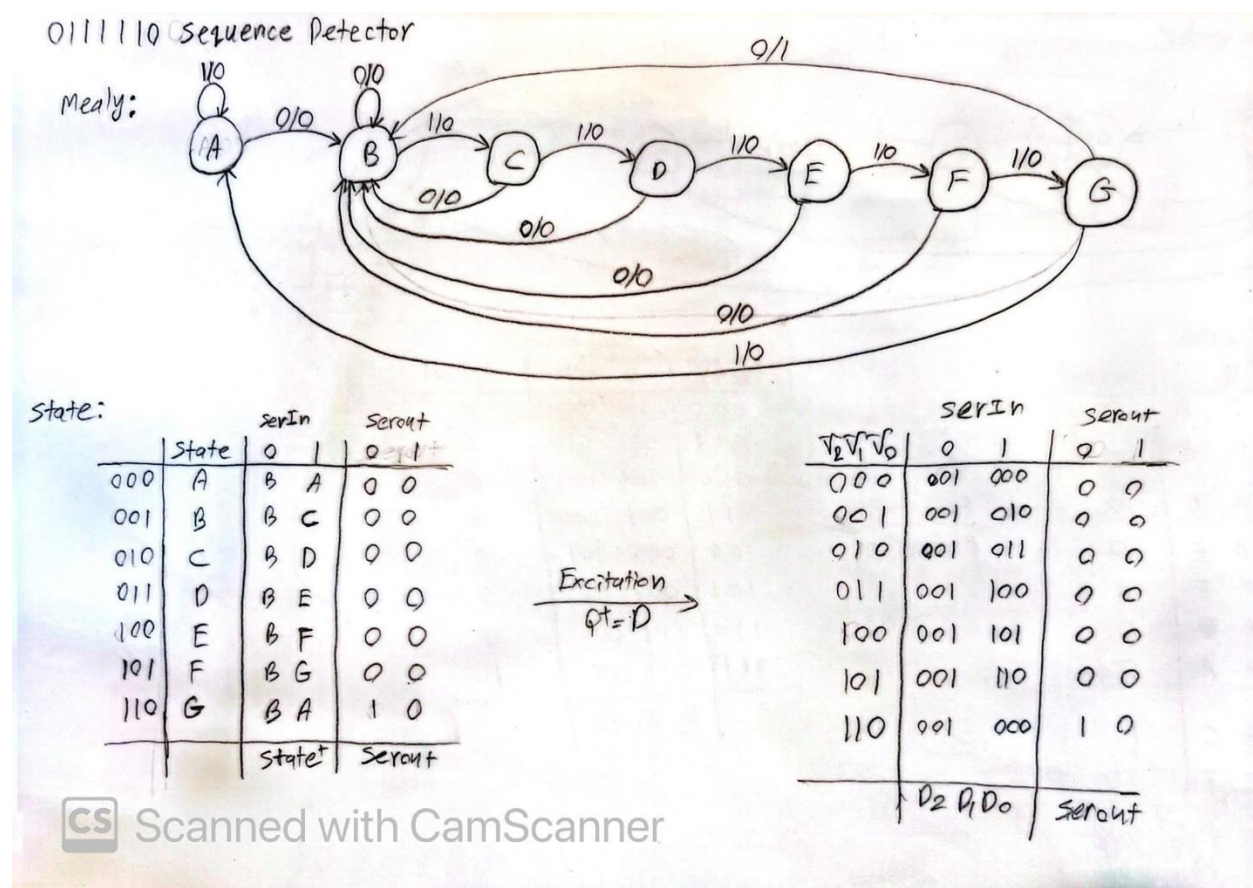 0111110 Sequence Detector
Mealy:
1/0
0/0
0/0
1/0
1/0
1/0
1/0
1/0
0/1
A
B
C
D
E
F
G
0/0
0/0
0/0
0/0
1/0
State:
serIn serout
State 0 1 0 1
000 A B A 0 0
001 B B C 0 0
010 C B D 0 0
011 D B E 0 0
100 E B F 0 0
101 F B G 0 0
110 G B A 1 0
State+ Serout
Excitation
Q+=D
serIn serout
V2V1V0 0 1 0 1
000 001 000 0 0
001 001 010 0 0
010 001 011 0 0
011 001 100 0 0
100 001 101 0 0
101 001 110 0 0
110 001 000 1 0
D2 D1 D0 Serout
CS Scanned with CamScanner